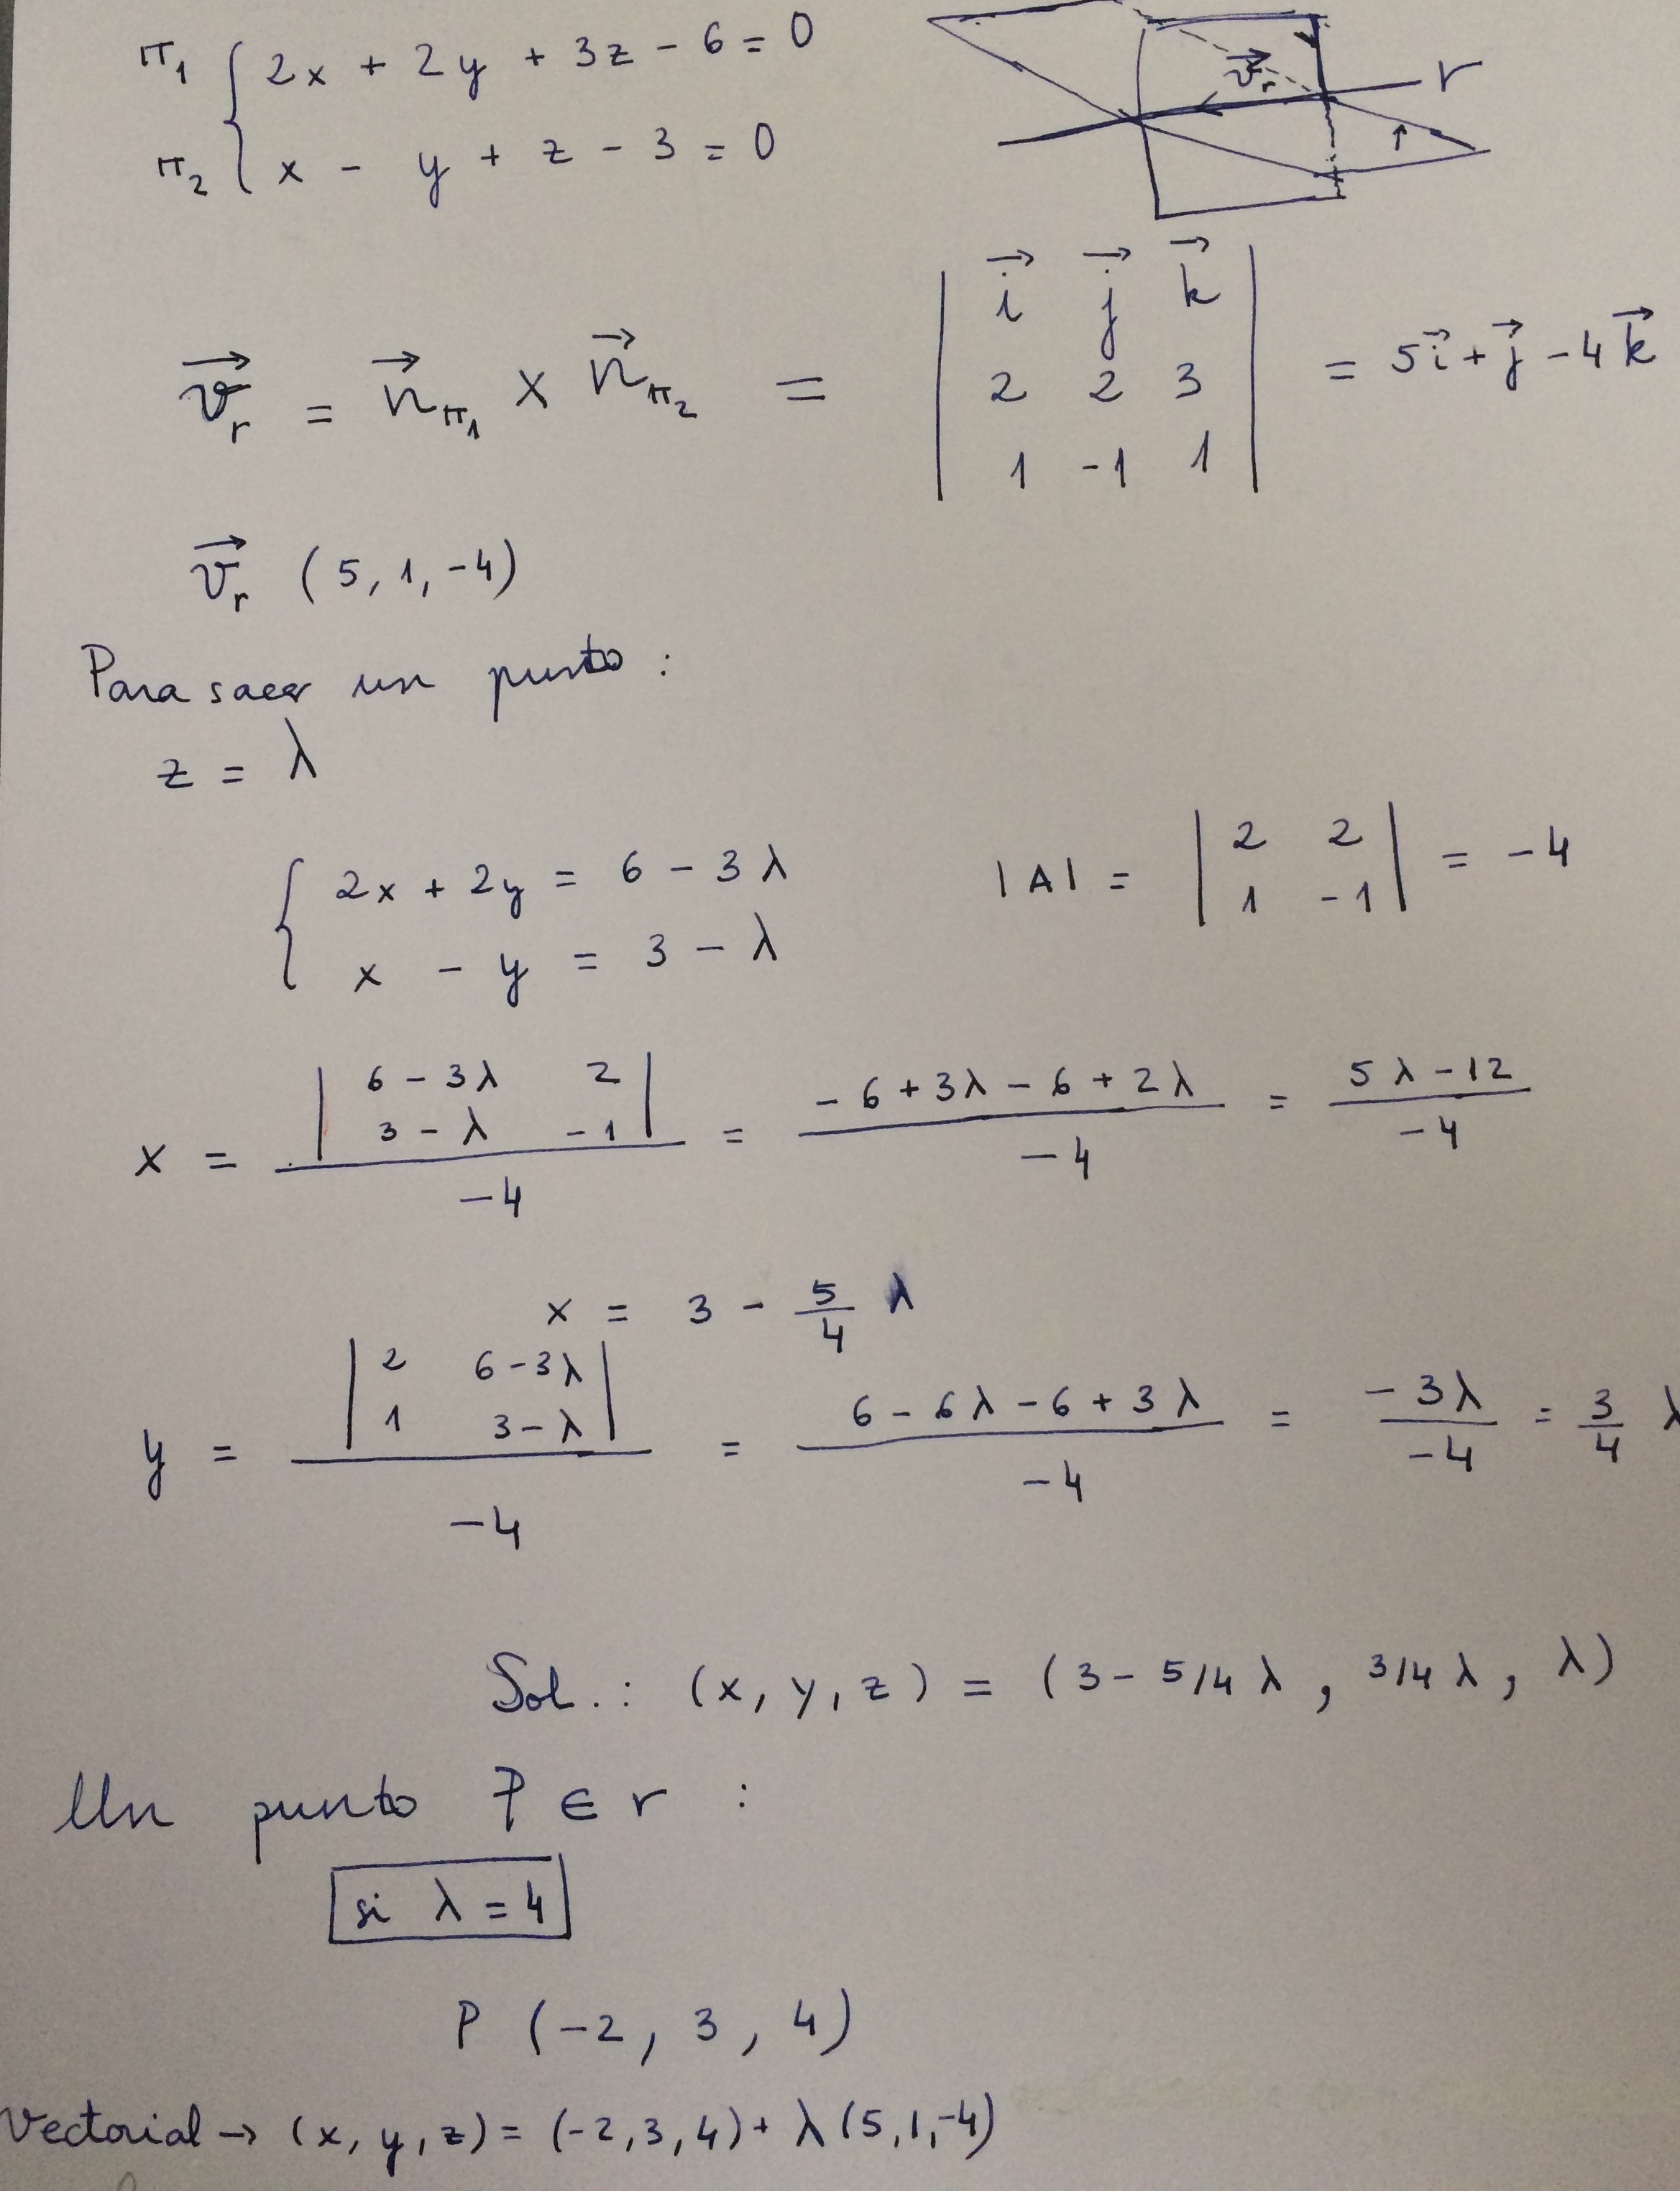 π₁ { 2x + 2y + 3z - 6 = 0
π₂ { x - y + z - 3 = 0
v⃗r
r
v⃗r = n⃗π₁ × n⃗π₂ = | i⃗ j⃗ k⃗ |
| 2 2 3 | = 5i⃗ + j⃗ - 4k⃗
| 1 -1 1 |
v⃗r (5, 1, -4)
Para sacar un punto :
z = λ
{ 2x + 2y = 6 - 3λ
{ x - y = 3 - λ
|A| = | 2 2 |
| 1 -1 | = -4
x = | 6 - 3λ 2 |
| 3 - λ -1 | / -4 = (-6 + 3λ - 6 + 2λ) / -4 = (5λ - 12) / -4
x = 3 - 5/4 λ
y = | 2 6 - 3λ |
| 1 3 - λ | / -4 = (6 - 6λ - 6 + 3λ) / -4 = -3λ / -4 = 3/4 λ
Sol.: (x, y, z) = (3 - 5/4 λ, 3/4 λ, λ)
Un punto P ∈ r :
si λ = 4
P (-2, 3, 4)
Vectorial → (x, y, z) = (-2, 3, 4) + λ (5, 1, -4)